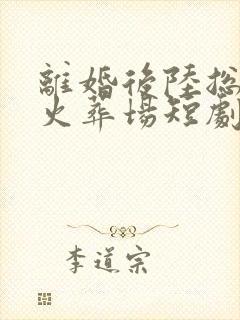 離婚後陸總
火葬場短劇
李道宗